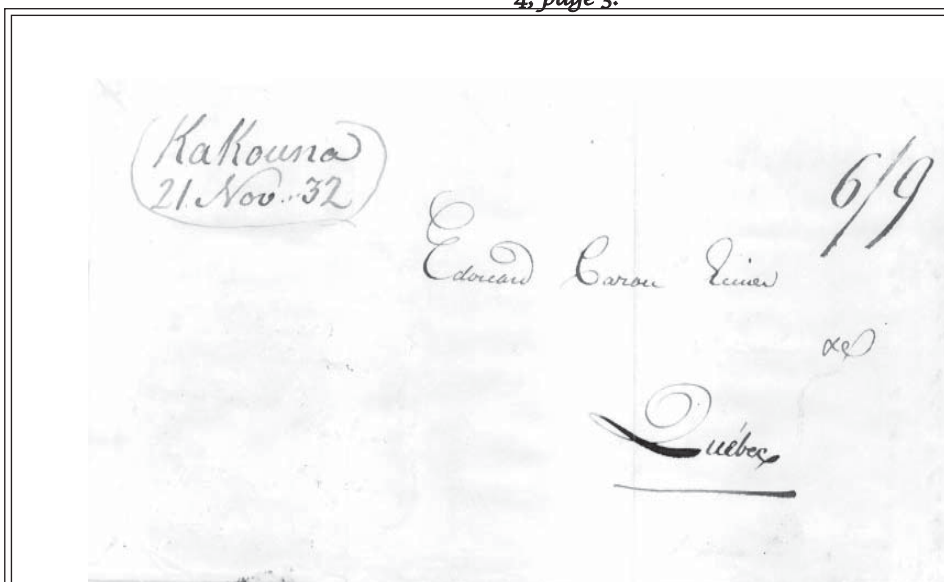 4, page 3.
KaKouna
21. Nov. 32
6/9
Edouard Caron
Québec